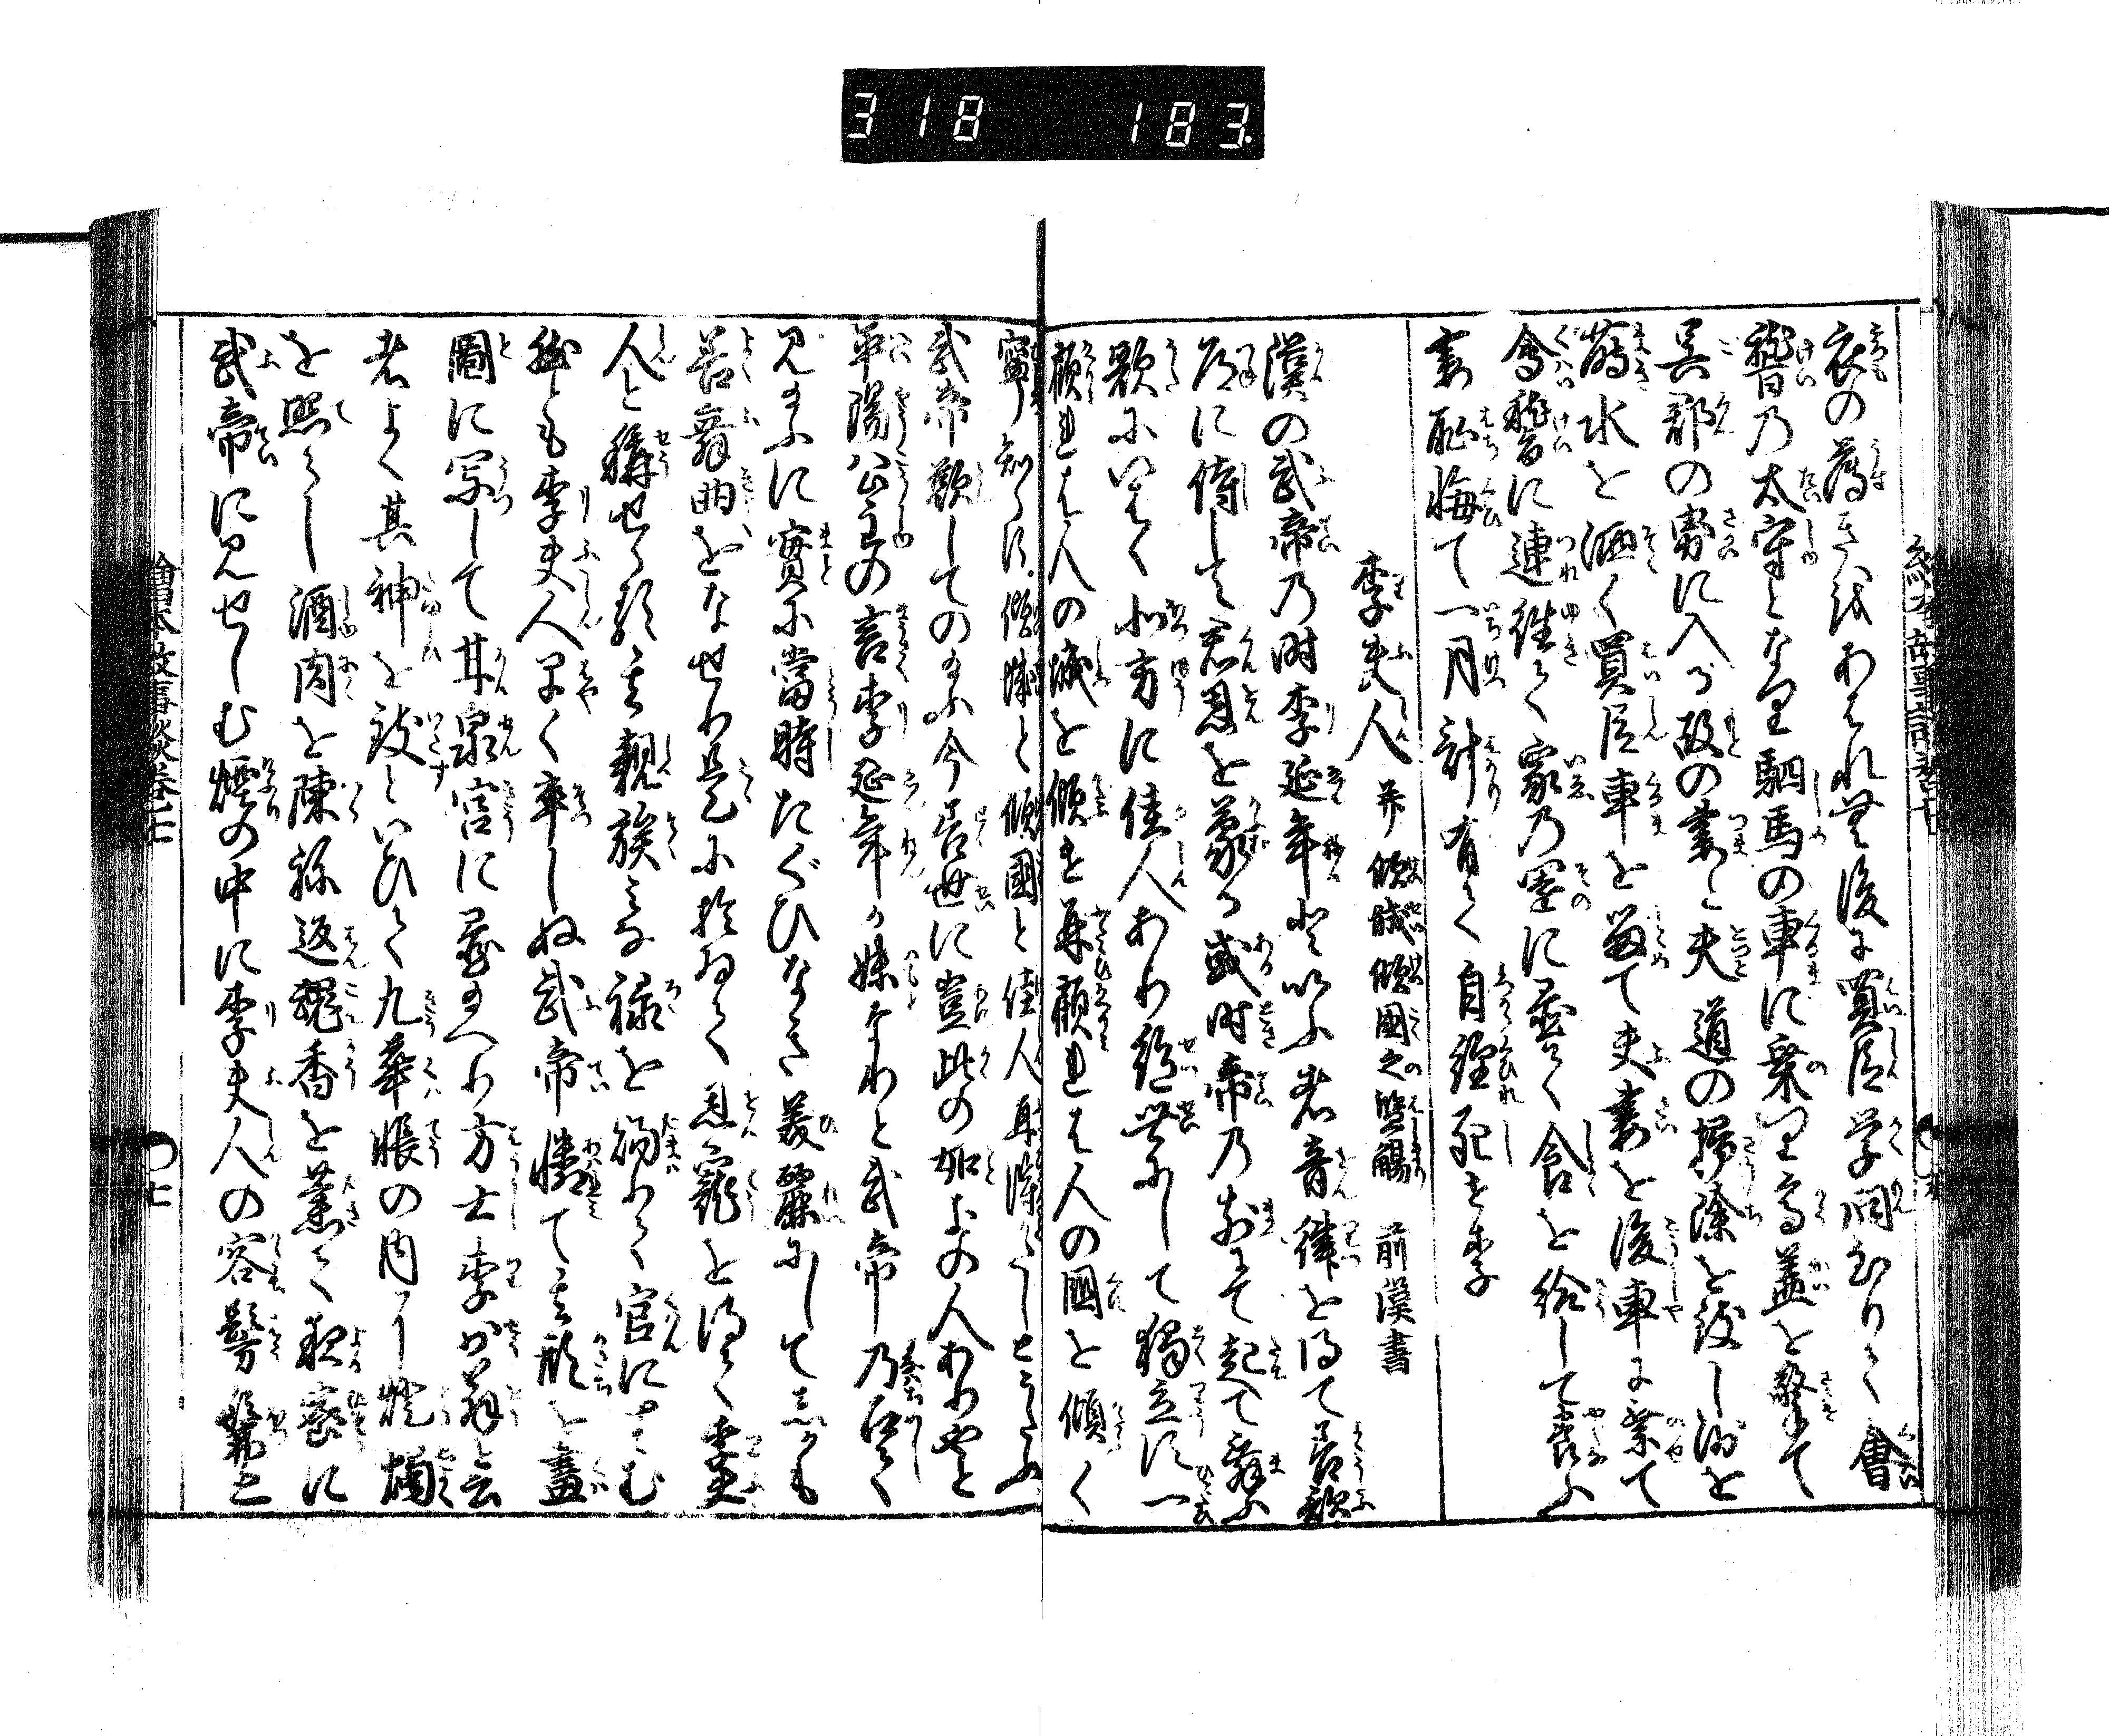 318 183.
衣の薄きは我あはれ共後に買臣学問なりて會
稽乃太守となり駟馬の車に乗り高蓋を擎て
呉郡の界に入る故の妻と夫道の掃除を致し沙を
蒔水を洒く買臣車を留て夫妻を後車に乗て
會稽に連往て家乃園に置て食を給して養ふ
妻耻悔て一月計有て自経死を李
李夫人 并傾城傾國之盬觴 前漢書
漢の武帝乃時李延年と以ふ者音律を得て善歌
常に侍して君恩を蒙る或時帝乃前にて起て舞ふ
歌にいはく北方に佳人あり絶世にして獨立に一
顧すれは人の城を傾き再顧すれは人の國を傾く
寧知らす傾城と傾國と佳人再得かたしとうたふ
武帝歎しての給ふ今善世に豈此の如きの人ありやと
平陽公主の言李延年か妹なりと武帝乃召て
見給ふに實に當時たぐひなき美麗にして志かも
善舞曲をなせり是に於ゐて恩寵を得て李夫
人と稱せらる其親族みな禄を賜りて官にすむ
然とも李夫人早く卒しぬ武帝憐て其形を畫
圖に写して甘泉宮に置給へり方士李少翁と云
者よく其神を致といひて九華帳の内にし燈燭
を照らし酒肉を陳ね返魂香を薫て夜密に
武帝に見せしむ煙の中に李夫人の容髣髴と
繪本故事談巻之七
〇七